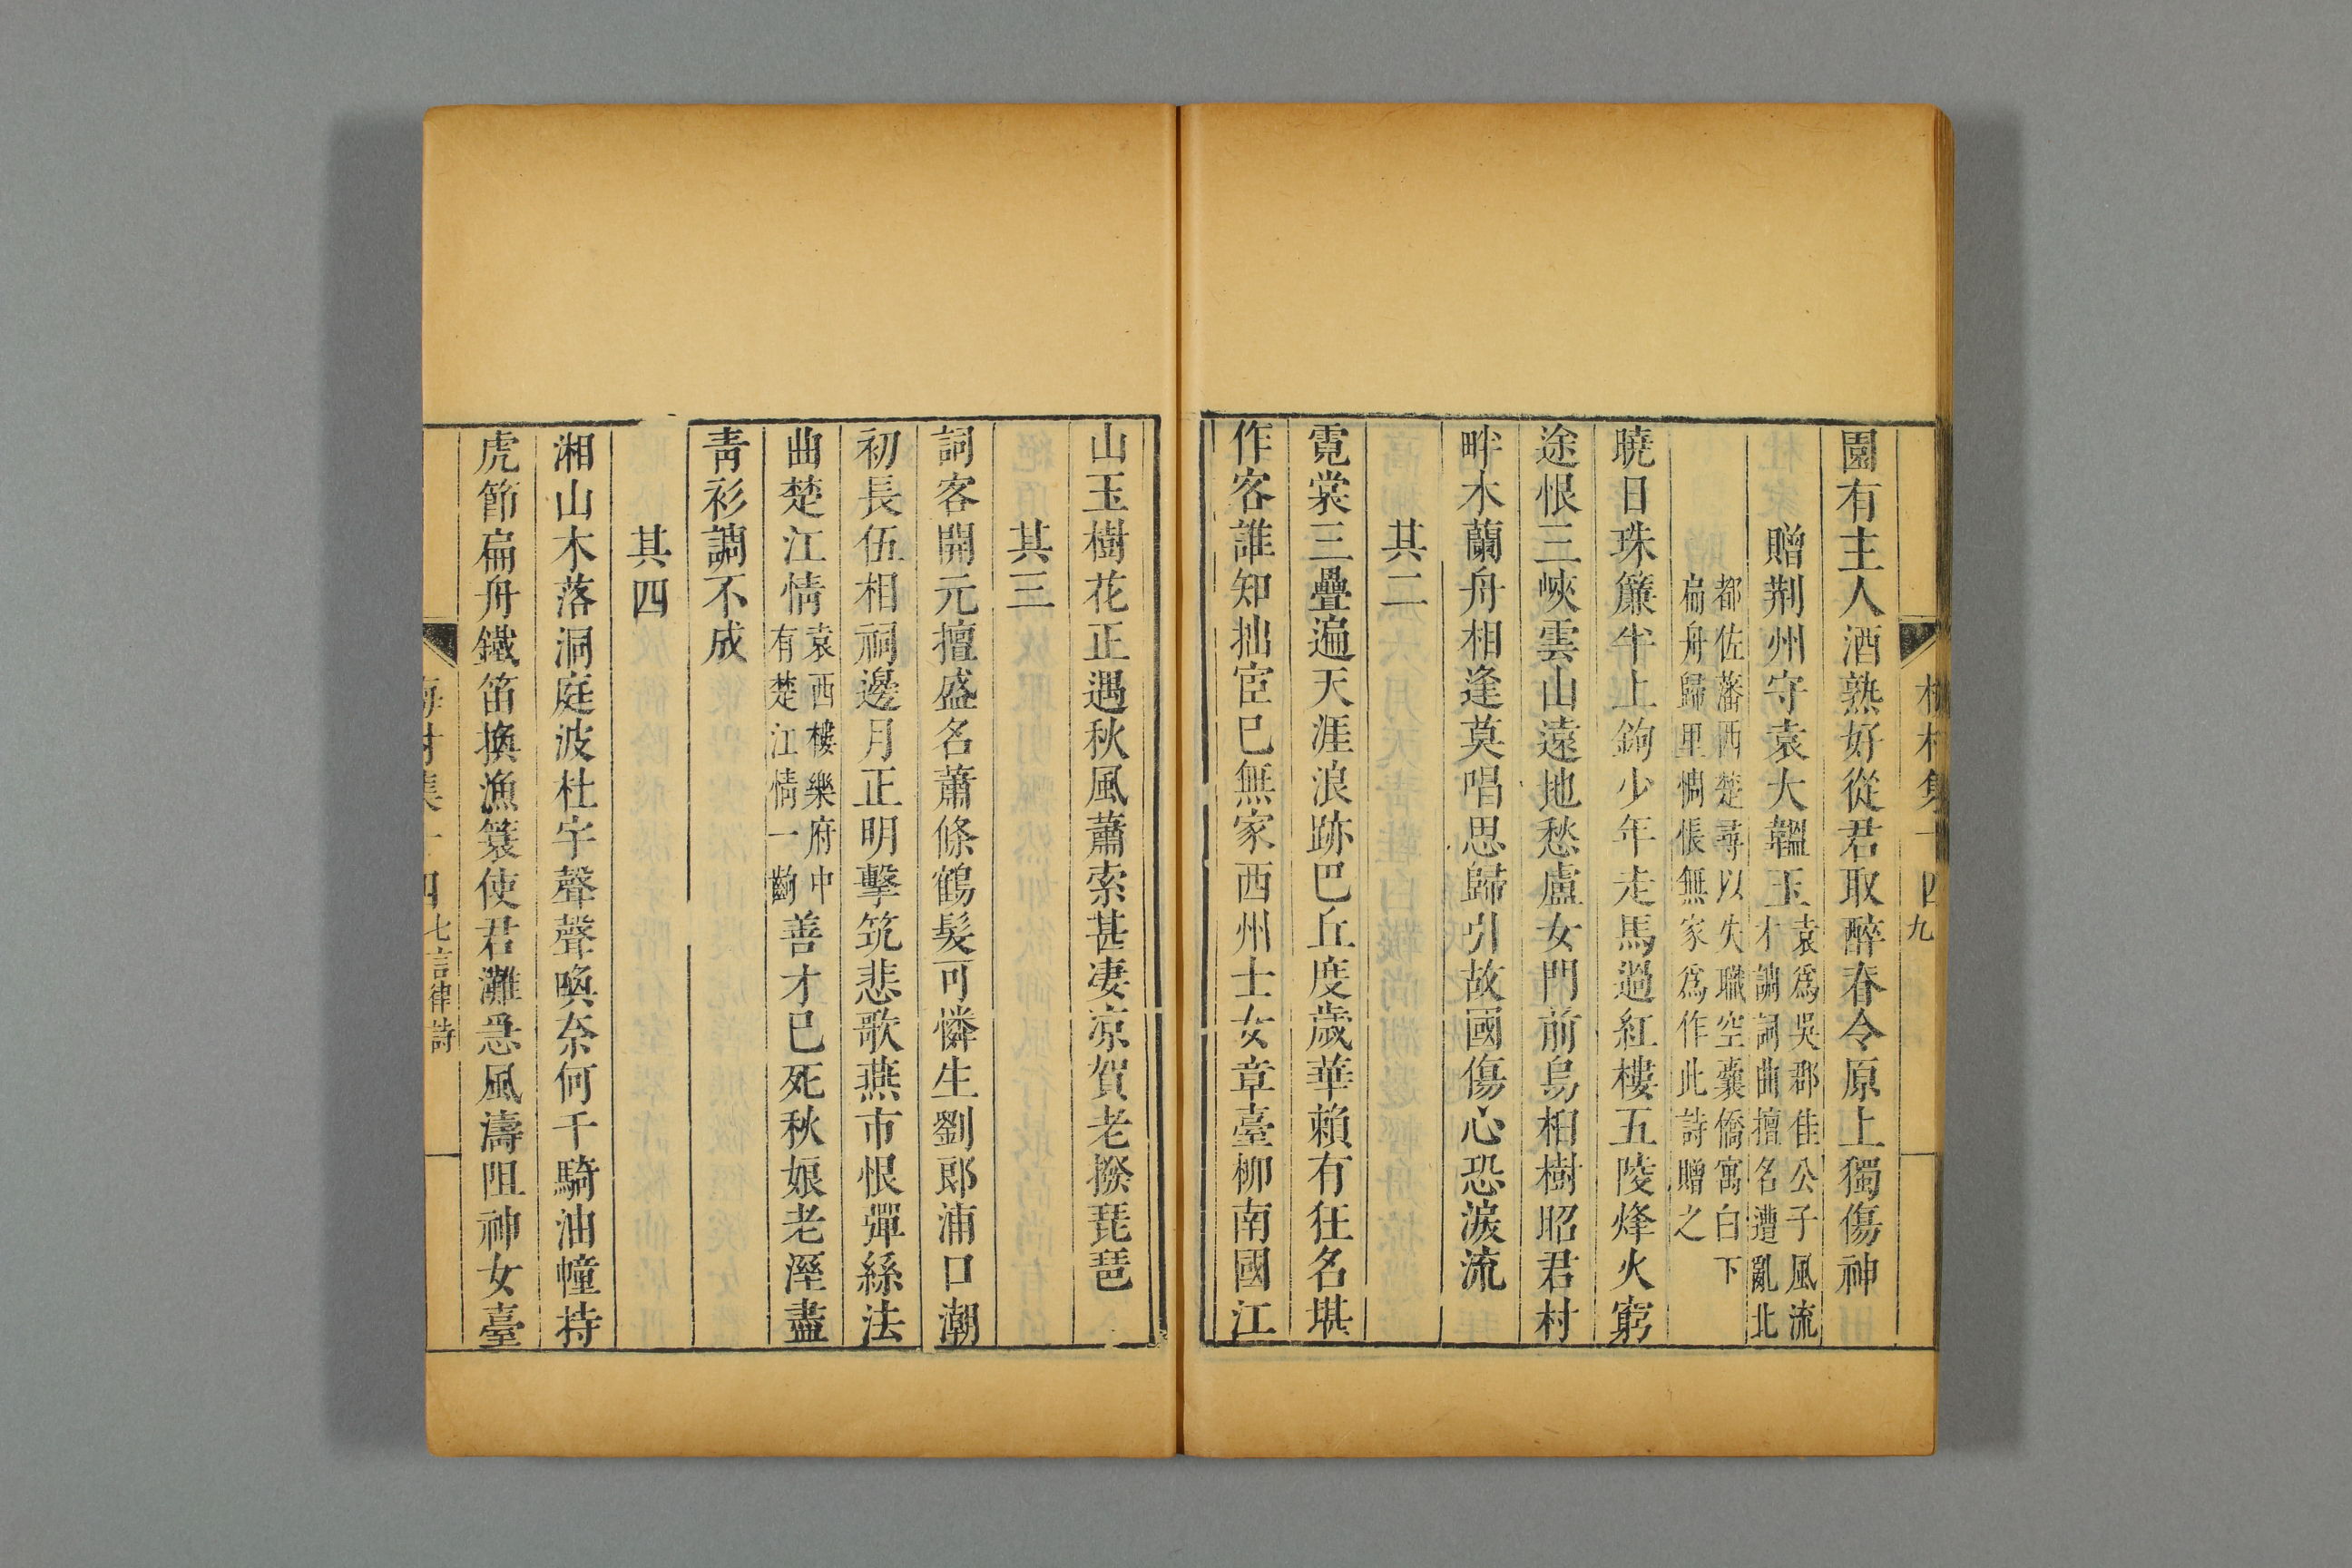 梅村集十四 九
園有主人酒熟好從君取醉春令原上獨傷神
贈荆州守袁大韞玉 袁爲吳郡佳公子風流
才調詞曲擅名遭亂北
都佐藩西楚尋以失職空囊僑寓白下
扁舟歸里惆悵無家爲作此詩贈之
曉日珠簾半上鉤少年走馬過紅樓五陵烽火窮
途恨三峽雲山遠地愁盧女門前烏桕樹昭君村
畔木蘭舟相逢莫唱思歸引故國傷心恐淚流
其二
霓裳三疊遍天涯浪跡巴丘度歲華賴有狂名堪
作客誰知拙宦已無家西州士女章臺柳南國江
山玉樹花正遇秋風蕭索甚凄凉賀老撥琵琶
其三
詞客開元擅盛名蕭條鶴髮可憐生劉郎浦口潮
初長伍相祠邊月正明擊筑悲歌燕市恨彈絲法
曲楚江情 袁西樓樂府中
有楚江情一齣
善才已死秋娘老溼盡
青衫調不成
其四
湘山木落洞庭波杜宇聲聲喚奈何千騎油幢持
虎節扁舟鐵笛換漁簑使君灘急風濤阻神女臺
梅村集十四 七言律詩